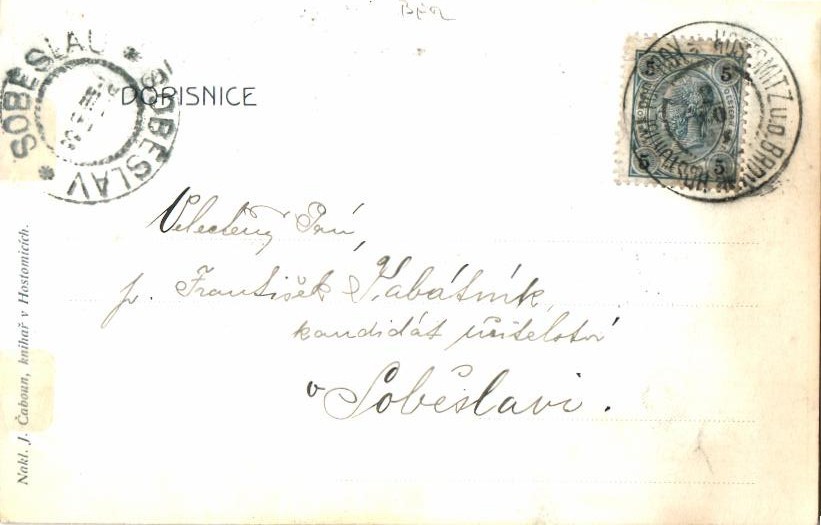 DOPISNICE
SOBĚSLAU * SOBĚSLAV *
5 5
5 5
HOSTOMITZ u.d. BRDY
Velectěný Pán,
p. František Kabátník,
kandidát učitelství
v Soběslavi.
Nakl. J. Čaboun, knihař v Hostomicích.